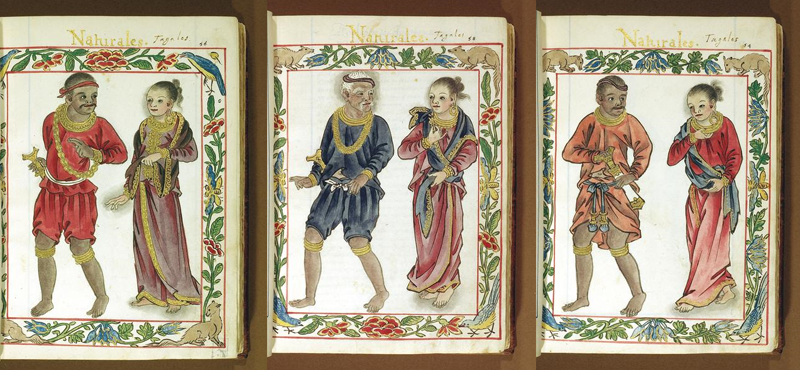 Naturales. Tagalos.
Naturales. Tagalos.
Naturales. Tagalos.